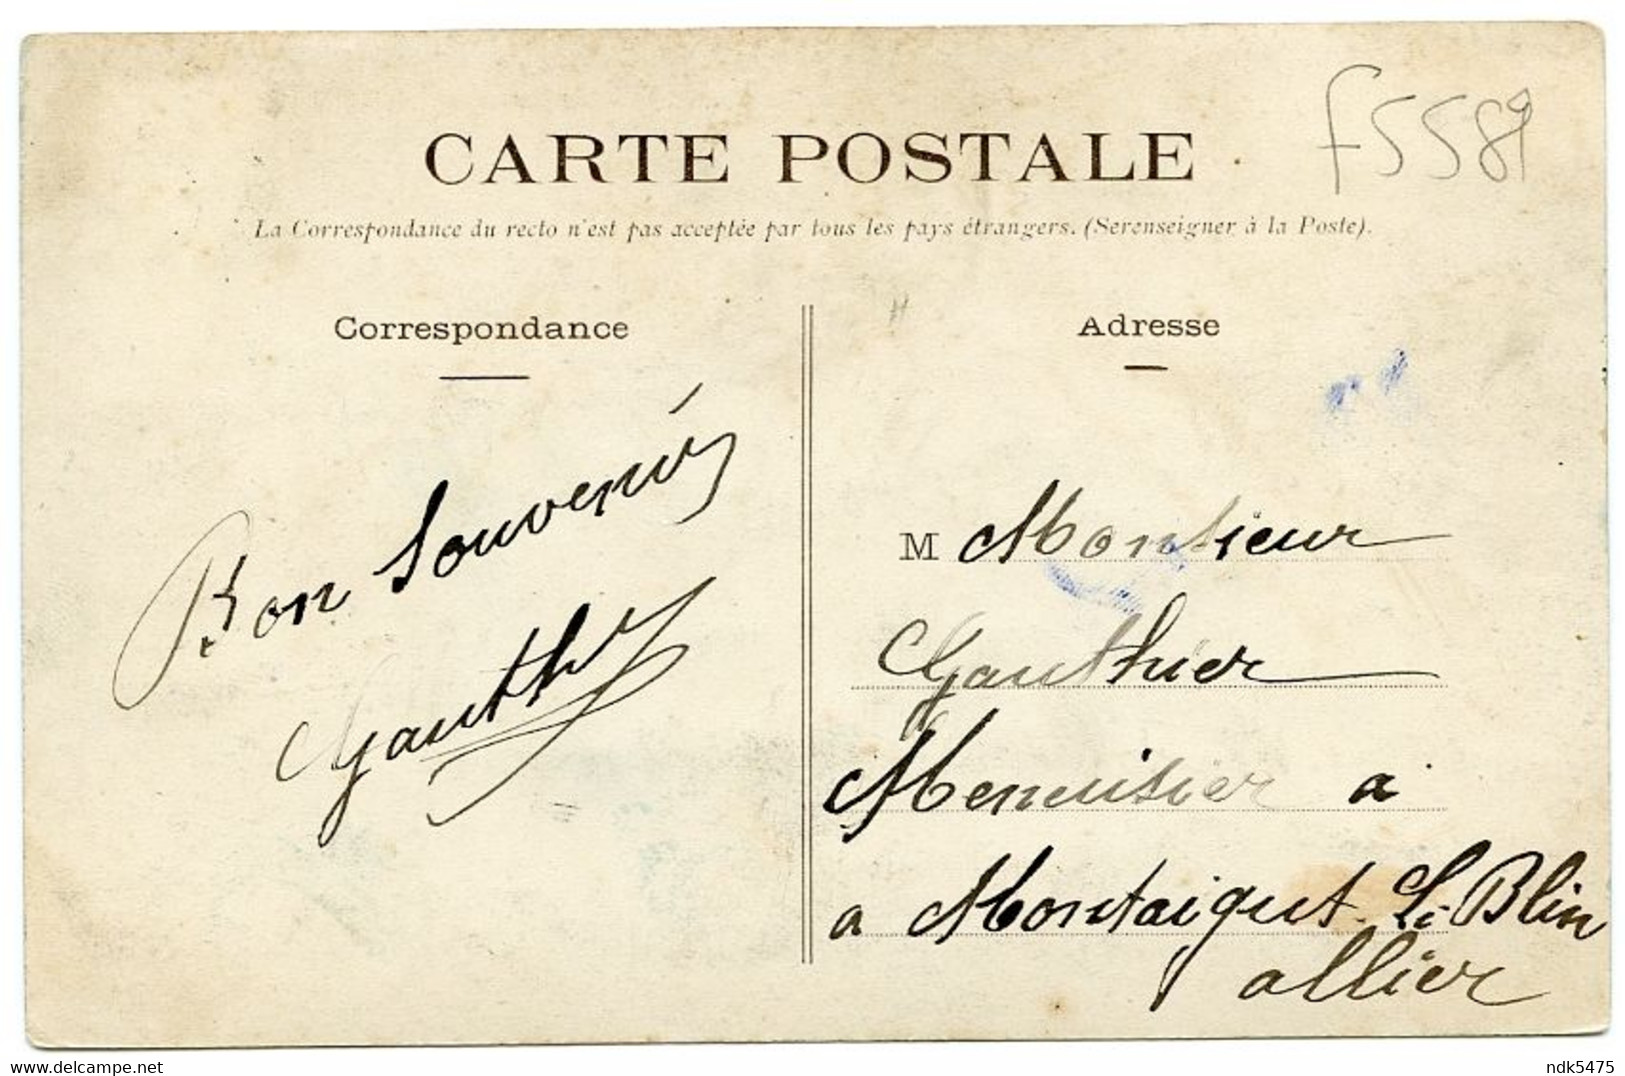 F5589
CARTE POSTALE
La Correspondance du recto n'est pas acceptée par tous les pays étrangers. (Se renseigner à la Poste).
Correspondance
Bon Souvenir
Gauthier
Adresse
M Monsieur
Gauthier
Menuisier a
a Montaigut. Le Blin
allier
delcampe.net
ndk5475